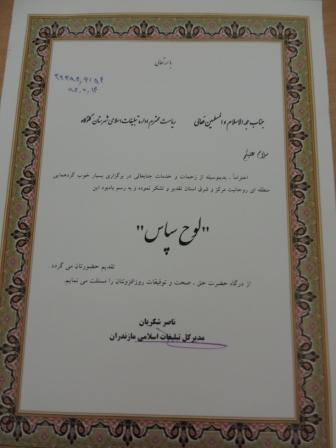 باسمه تعالی
جناب حجه الاسلام و المسلمین
ریاست محترم اداره تبلیغات اسلامی شهرستان گلوگاه
سلام علیکم
احتراماً ، بدینوسیله از زحمات و خدمات جنابعالی در برگزاری بسیار خوب گردهمایی
منطقه ای روحانیت مرکز و شرق استان تقدیر و تشکر نموده و به رسم یادبود این
"لوح سپاس"
تقدیم حضورتان می گردد
از درگاه حضرت حق ، صحت و توفیقات روزافزونتان را مسئلت می نمایم.
ناصر شکریان
مدیرکل تبلیغات اسلامی مازندران